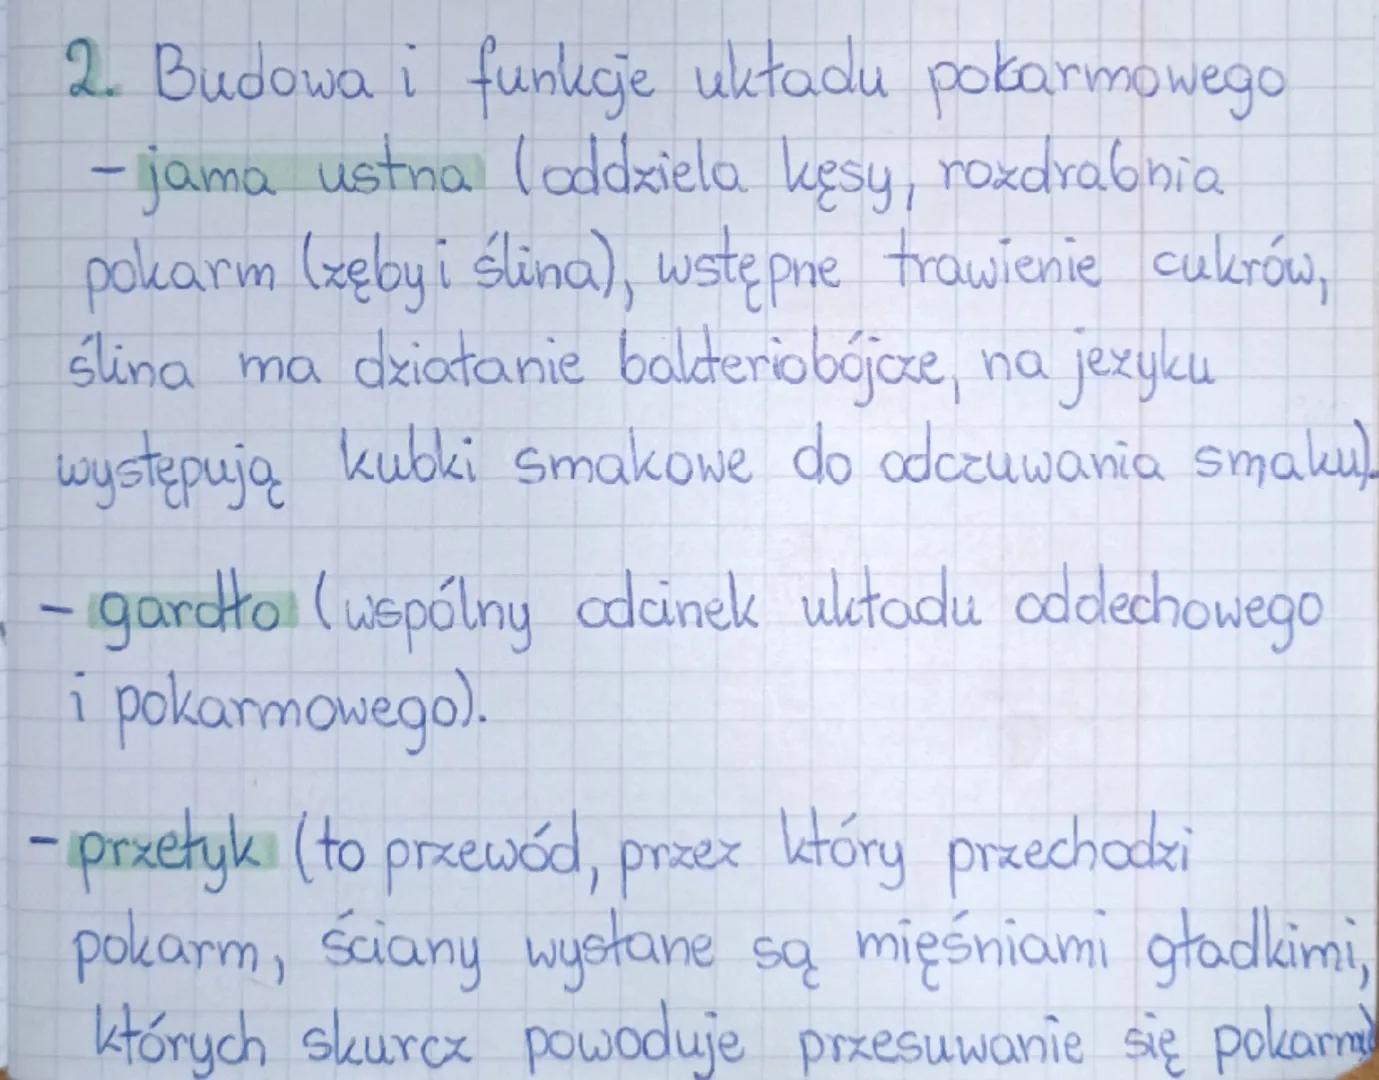 2. Budowa i funkcje układu pokarmowego
- jama ustna (oddziela kęsy, rozdrabnia
pokarm (zęby i ślina), wstępne trawienie cukrów,
ślina ma działanie bakteriobójcze, na jezyku
występują kubki smakowe do odczuwania smaku).
- gardło (wspólny odcinek układu oddechowego
i pokarmowego).
- przełyk (to przewód, przez który przechodzi
pokarm, ściany wysłane są mięśniami gładkimi,
których skurcz powoduje przesuwanie się pokarmu)